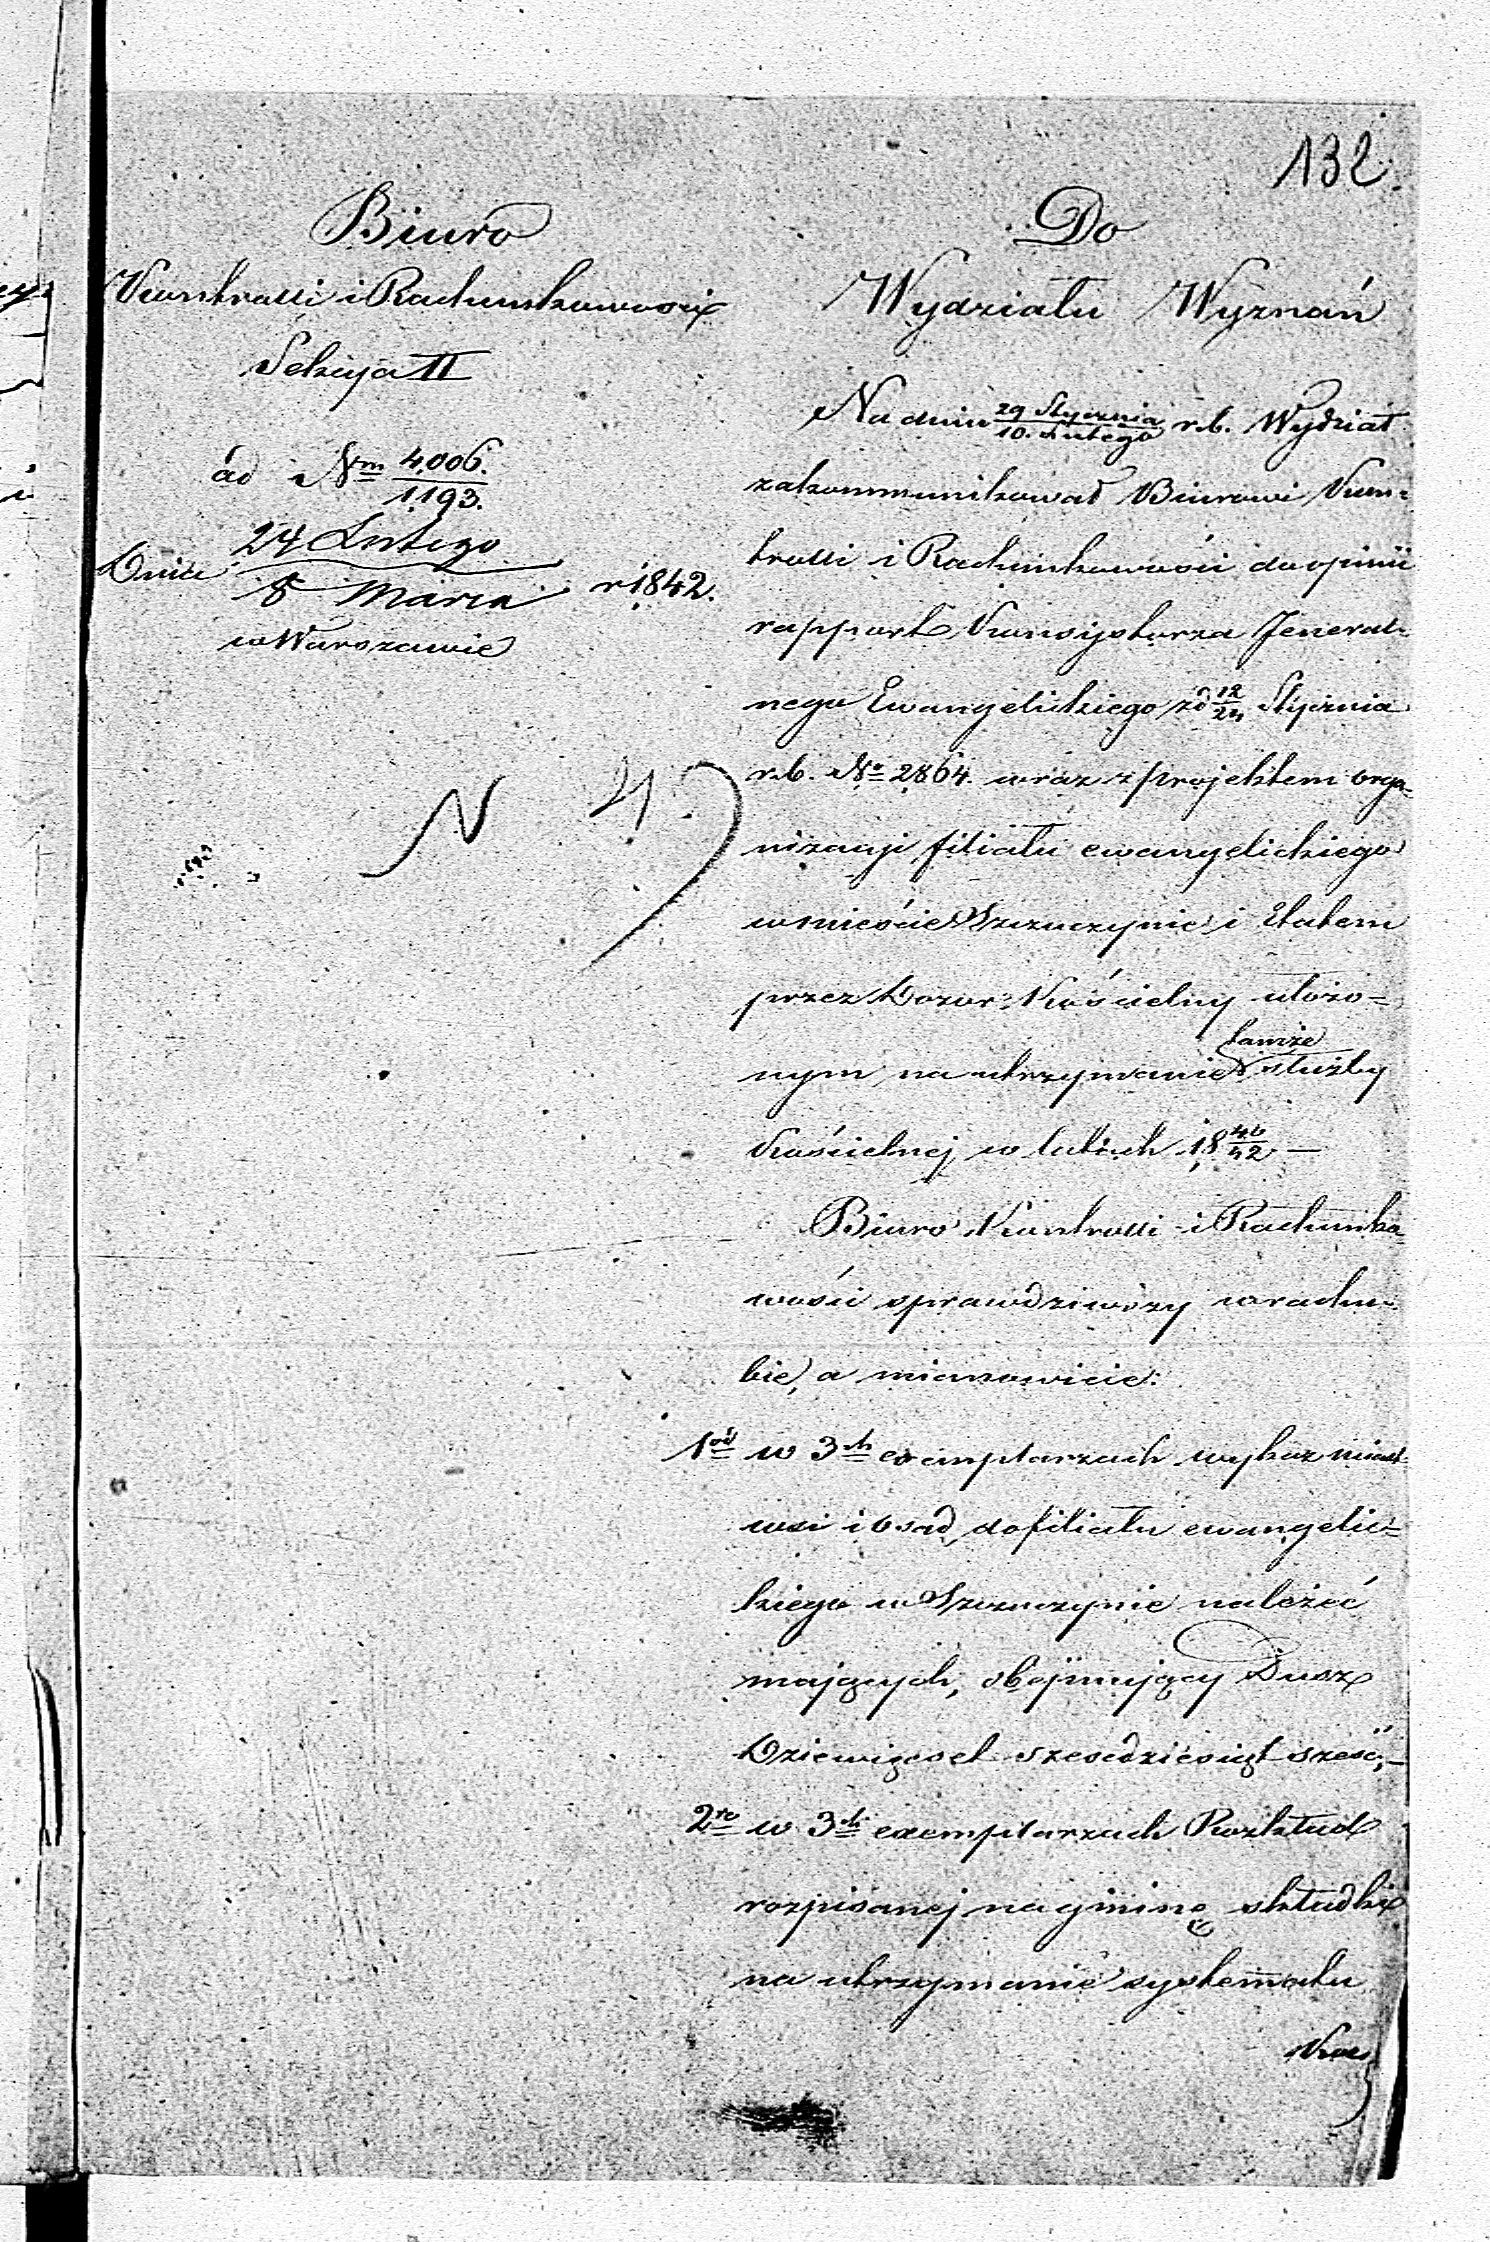 132.
Biuro
Kontrolli i Rachunkowości
Sekcya II
ad Nrm 4,006. / 1,193.
Dnia 24 Lutego / 8 Marca r. 1842.
w Warszawie
Do
Wydziału Wyznań
Na dniu 29 Stycznia / 10. Lutego r.b. Wydział
zakommunikował Biurowi Kon=
trolli i Rachunkowości do opinii
rapport Konsystorza Jeneral=
nego Ewangelickiego z d 12/24 Stycznia
r.b. No 2864. wraz z projektem orga=
nizacji filiału ewangelickiego
w mieście Szczuczynie i Etatem
przez Dozór Kościelny ułożo=
nym na utrzymanie tamże służby
Kościelnej w latach 18 40/42 —
Biuro Kontrolli i Rachunko=
wości sprawdziwszy w rachu=
bie, a mianowicie:
1od w 3ch exemplarzach wykaz miast
wsi i osad do filiału ewangelic=
kiego w Szczuczynie należeć
mających, obejmujący Dusz
Dziewięcset sześćdziesiąt sześć,—
2re w 3ch exemplarzach Rozkład
rozpisanej na gminę składki
na utrzymanie systematu
Koś